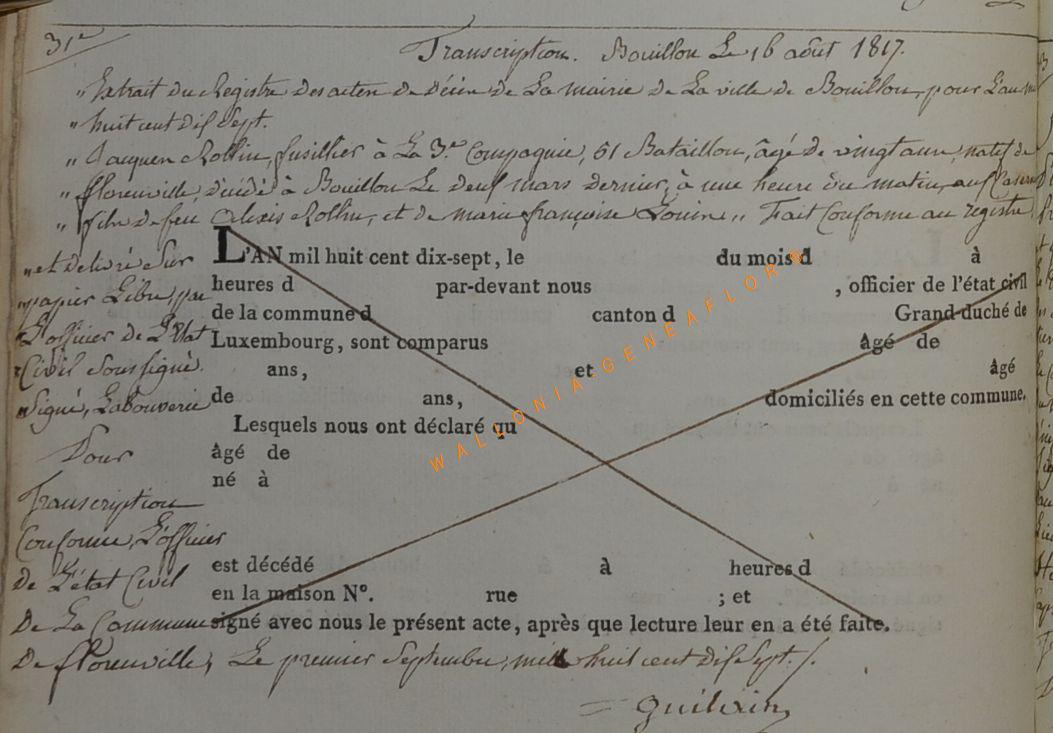 31e
Transcription. Bouillon Le 16 août 1817.
"Extrait du Registre des actes de décès de La mairie de La ville de Bouillon, pour L'an mil
"huit cent dix sept.
"Jacques Rollin, fusillier à La 3me Compagnie, 61 Bataillon, âgé de vingt ans, natif de
"florenville, décédé à Bouillon Le deux mars dernier, à une heure du matin, aux Casernes
"fils de feu Alexis Rollin, et de marie françoise "Fait Conforme au registre
"et délivré sur
"papier Libre, par
"L'officier de L'Etat
"Civil Soussigné.
"Signé, Labouverie
Pour
Transcription
Conforme, L'officier
de L'état Civil
De La Commune
De florenville, Le premier Septembre, mill huit cent dix Sept./.
L'AN mil huit cent dix-sept, le du mois d à
heures d par-devant nous , officier de l'état civil
de la commune d canton d Grand-duché de
Luxembourg, sont comparus âgé de
ans, et âgé
de ans, domiciliés en cette commune.
Lesquels nous ont déclaré qu
âgé de
né à
est décédé à heures d
en la maison N°. rue ; et
signé avec nous le présent acte, après que lecture leur en a été faite.
WALLONIA-GENEAFLORE